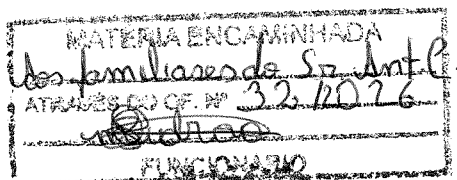 MATÉRIA ENCAMINHADA
Aos familiares do Sr. Ant C.
ATRAVÉS DO OF. Nº 32/2026
FUNCIONÁRIO